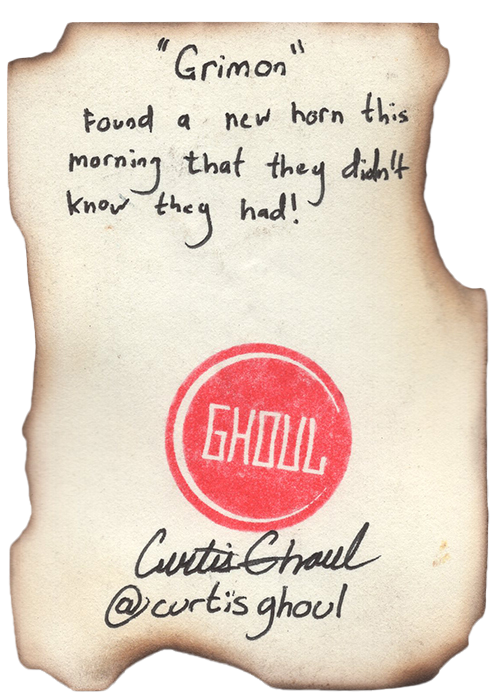 "Grimon"
Found a new horn this
morning that they didn't
know they had!
GHOUL
Curtis Ghoul
@curtisghoul